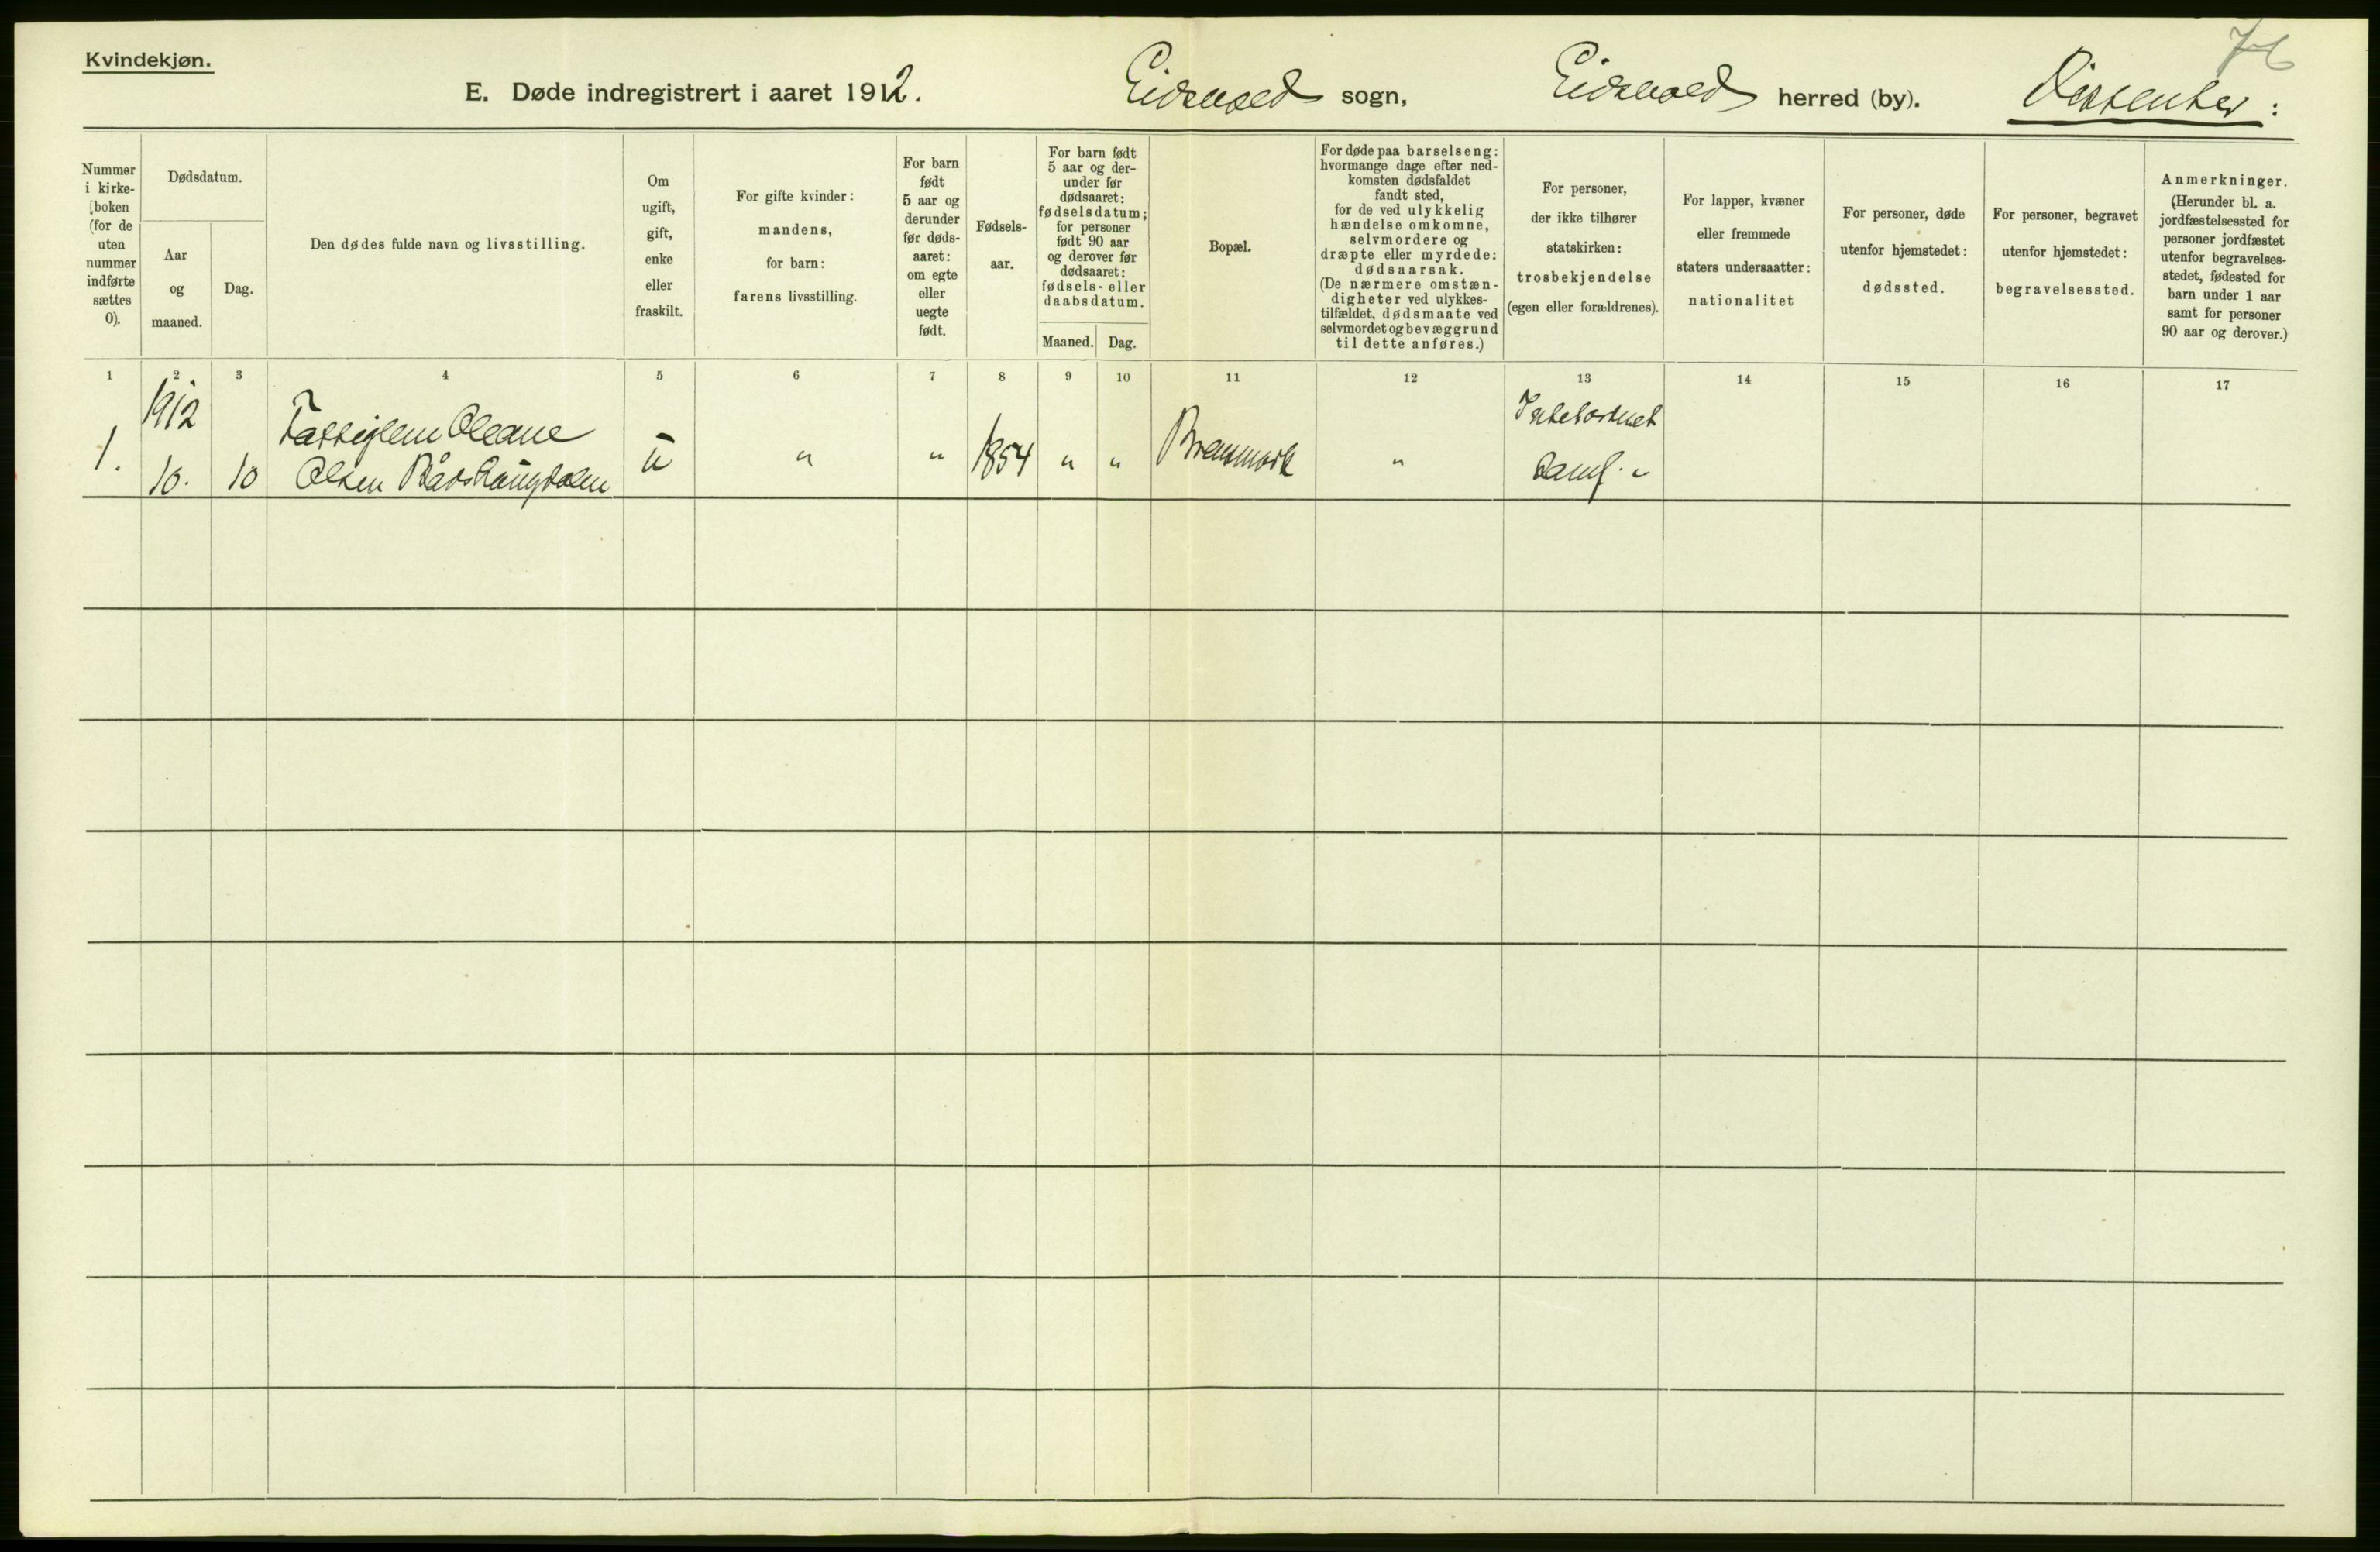 76
Kvindekjøn.
E. Døde indregistrert i aaret 1912. Eidsvold sogn, Eidsvold herred (by). Dissenter:
Nummer
i kirke-
boken
(for de
uten
nummer
indførte
sættes
0).
Dødsdatum.
Aar
og
maaned.
Dag.
Den dødes fulde navn og livsstilling.
Om
ugift,
gift,
enke
eller
fraskilt.
For gifte kvinder:
mandens,
for barn:
farens livsstilling.
For barn
født
5 aar og
derunder
før døds-
aaret:
om egte
eller
uegte
født.
Fødsels-
aar.
For barn født
5 aar og der-
under før
dødsaaret:
fødselsdatum;
for personer
født 90 aar
og derover før
dødsaaret:
fødsels- eller
daabsdatum.
Maaned.
Dag.
Bopæl.
For døde paa barselseng:
hvormange dage efter ned-
komsten dødsfaldet
fandt sted,
for de ved ulykkelig
hændelse omkomne,
selvmordere og
dræpte eller myrdede:
dødsaarsak.
(De nærmere omstæn-
digheter ved ulykkes-
tilfældet, dødsmaate ved
selvmordet og bevæggrund
til dette anføres.)
For personer,
der ikke tilhører
statskirken:
trosbekjendelse
(egen eller forældrenes).
For lapper, kvæner
eller fremmede
staters undersaatter:
nationalitet
For personer, døde
utenfor hjemstedet:
dødssted.
For personer, begravet
utenfor hjemstedet:
begravelsessted.
Anmerkninger.
(Herunder bl. a.
jordfæstelsessted for
personer jordfæstet
utenfor begravelses-
stedet, fødested for
barn under 1 aar
samt for personer
90 aar og derover.)
1 2 3 4 5 6 7 8 9 10 11 12 13 14 15 16 17
1.
1912
10.
10
Fattiglem Oleane
Olsen
u
"
"
1854
"
"
"
samf.